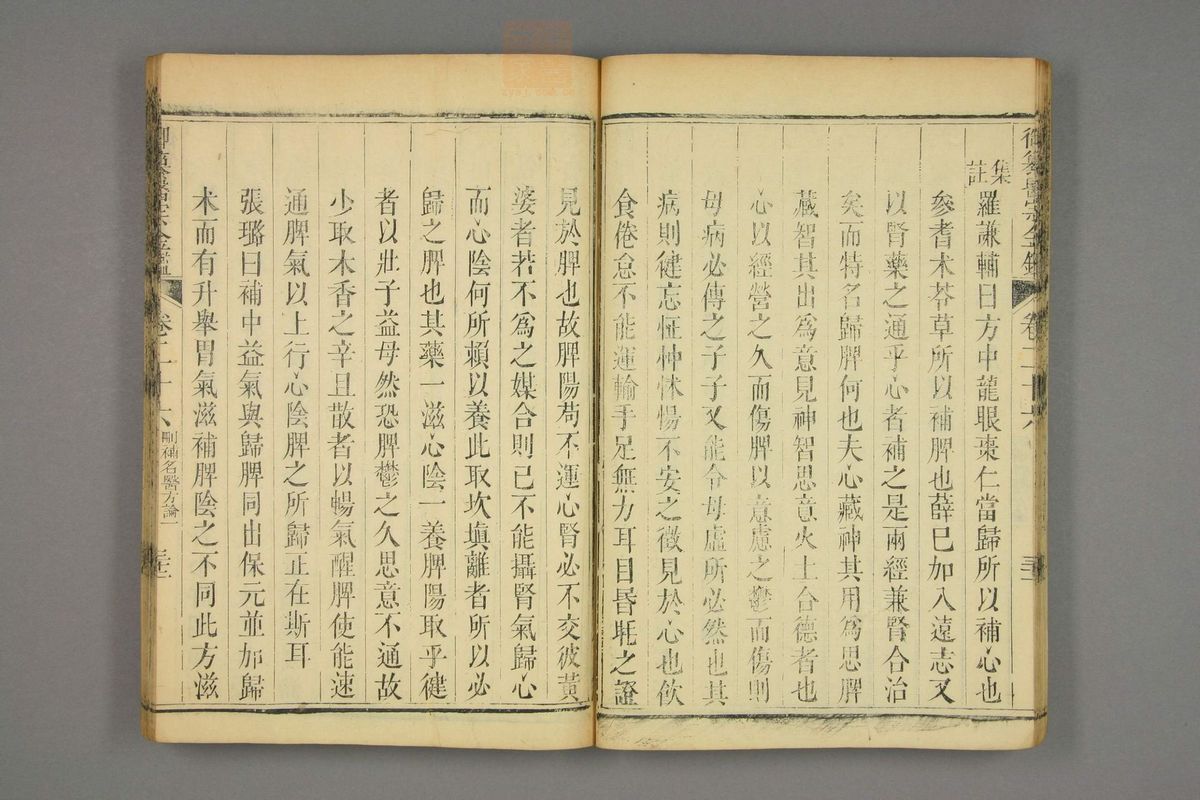 御纂醫宗金鑑 卷二十六
集註
羅謙輔曰方中龍眼棗仁當歸所以補心也
參耆术苓草所以補脾也薛已加入遠志又
以腎藥之通乎心者補之是兩經兼腎合治
矣而特名歸脾何也夫心藏神其用爲思脾
藏智其出爲意見神智思意火土合德者也
心以經營之久而傷脾以意慮之鬱而傷則
母病必傳之子子又能令母虛所必然也其
病則健忘怔忡怵惕不安之徵見於心也飲
食倦怠不能運輸手足無力耳目昏眊之證
見於脾也故脾陽苟不運心腎必不交彼黃
婆者若不爲之媒合則已不能攝腎氣歸心
而心陰何所賴以養此取坎填離者所以必
歸之脾也其藥一滋心陰一養脾陽取乎健
者以壯子益母然恐脾鬱之久思意不通故
少取木香之辛且散者以暢氣醒脾使能速
通脾氣以上行心陰脾之所歸正在斯耳
張璐曰補中益氣與歸脾同出保元並加歸
术而有升舉胃氣滋補脾陰之不同此方滋
御纂醫宗金鑑 卷二十六 刪補名醫方論一